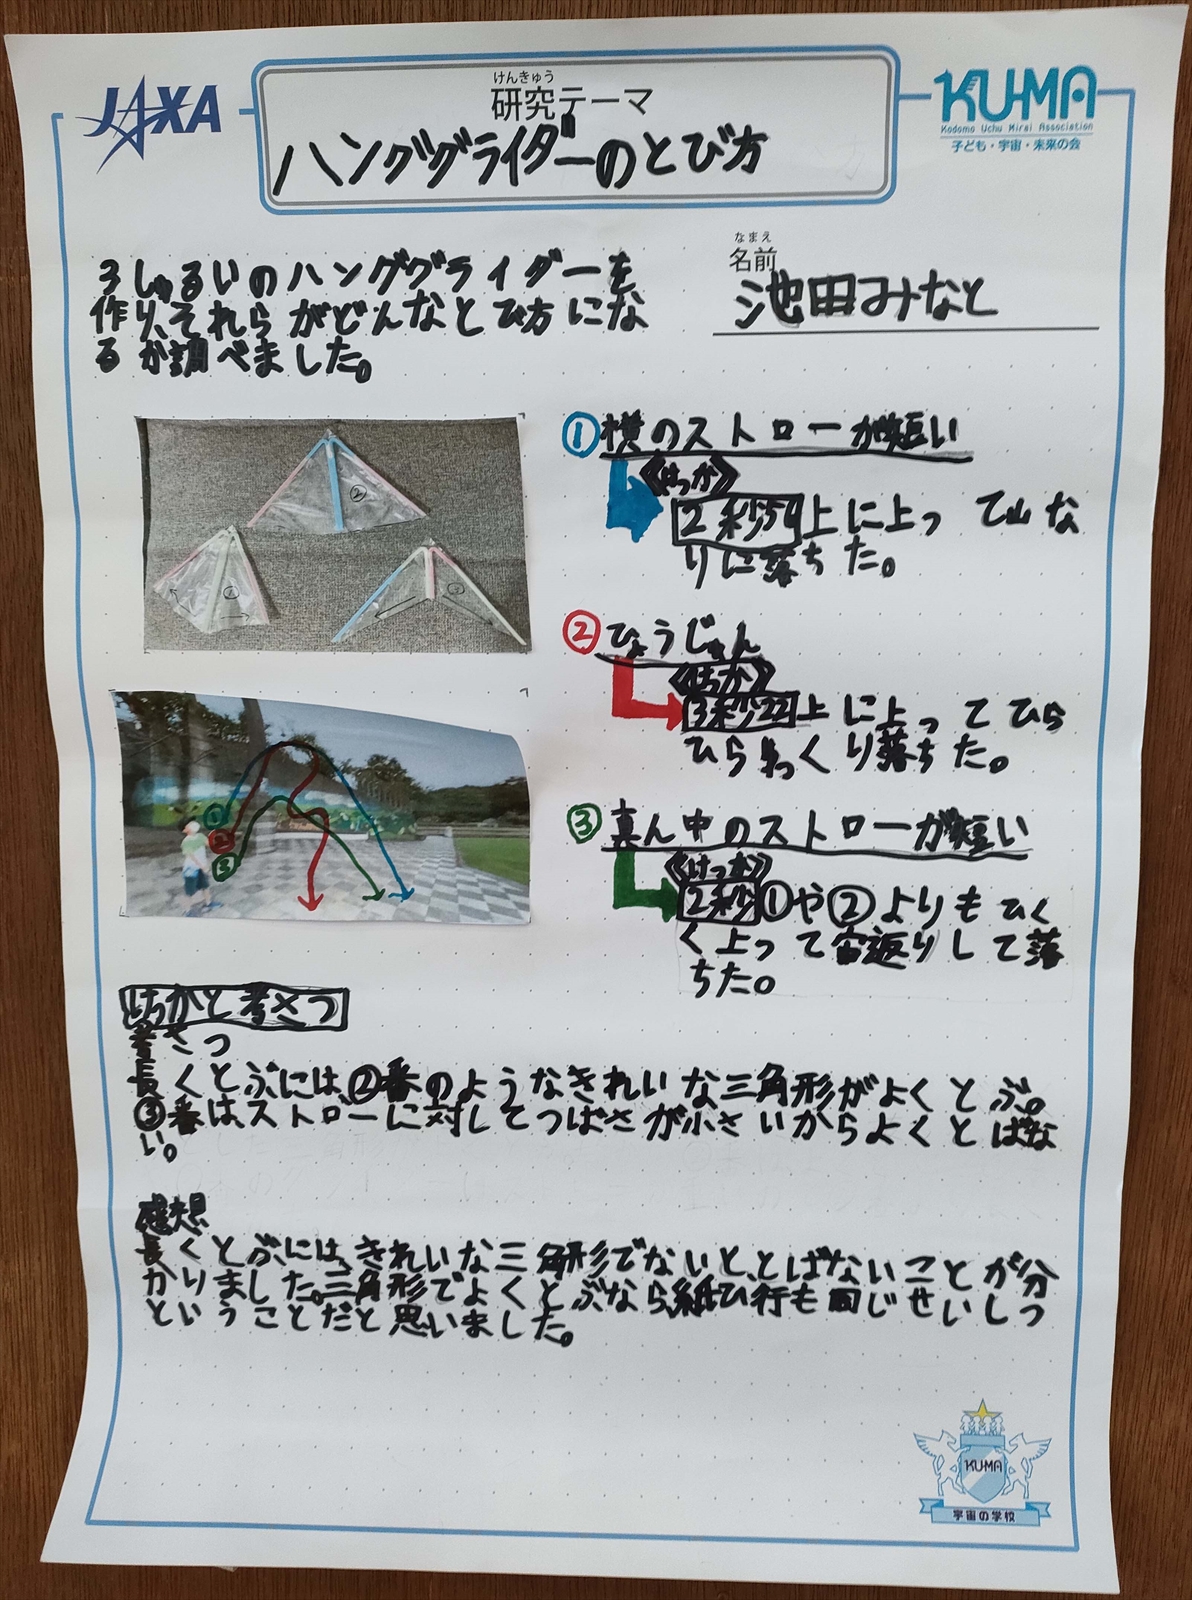 JAXA
けんきゅう
研究テーマ
ハンググライダーのとび方
KU-MA
Kodomo Uchu Mirai Association
子ども・宇宙・未来の会
なまえ
名前
池田みなと
3しゅるいのハンググライダーを
作り、それらがどんなとび方にな
るか調べました。
②
①
③
①横のストローが短い
《けっか》
2秒51上に上って山な
りに落ちた。
②ひょうじゅん
《けっか》
3秒22上に上ってひら
ひらゆっくり落ちた。
③真ん中のストローが短い
《けっか》
2秒①や②よりもひく
く上って宙返りして落
ちた。
①
②
③
けっかと考さつ
考さつ
長くとぶには、②番のようなきれいな三角形がよくとぶ。
③番は、ストローに対してつばさが小さいからよくとばな
い。
感想
長くとぶには、きれいな三角形でないと、とばないことが分
かりました。三角形でよくとぶなら、紙ひ行も同じせいしつ
ということだと思いました。
KU-MA
宇宙の学校